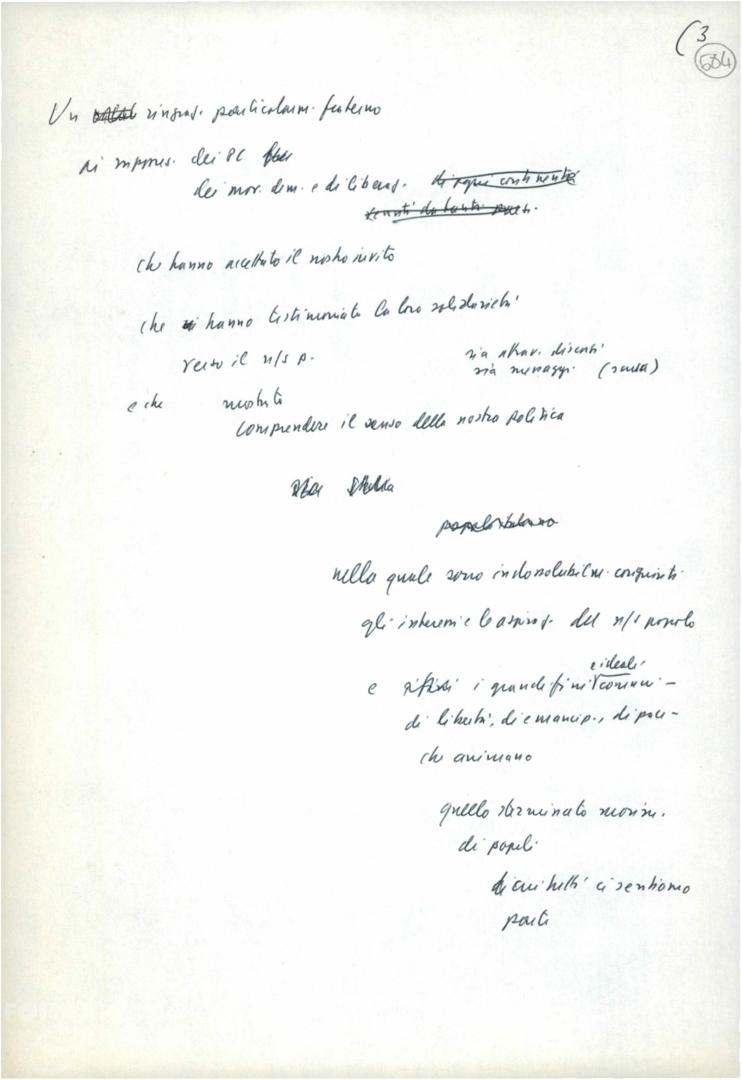 (3
684
Un ringraz. particolarm. fraterno
ai rappres. dei PC
dei mov. dem. e di liberaz. di ogni continente
venuti da tanti paesi.
che hanno accettato il nostro invito
che hanno testimoniato la loro solidarietà
verso il n/s p.
sia attrav. discorsi
sia messaggi. (scusa)
e che mostrato
comprendere il senso della nostra politica
nella quale sono indissolubilm. congiunti
gli interessi e le aspiraz. del n/s popolo
e ideali
e i grandi fini comuni –
di libertà, di emancip., di pace –
che animano
quello sterminato movim.
di popoli
di cui tutti ci sentiamo
parte